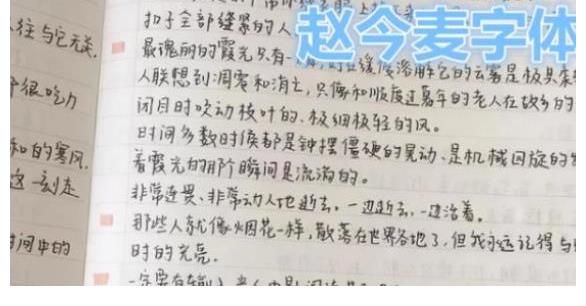 赵今麦字体
往与它无关.
很吃力
和的寒风.
这一刻走
时间中的
扣子全部缝紧的人
最瑰丽的霞光只有一
缓慢溶解它的云雾是极具
人联想到凋零和消亡,只像和顺度过暮年的老人在故乡的
闭目时吹动枝叶的、极细极轻的风.
时间多数时候都是钟摆僵硬的晃动、是机械回旋的
着霞光的那个瞬间是流淌的.
非常连贯、非常动人地逝去.一边逝去,一边活着.
那些人就像烟花一样,散落在世界各地了,但我永远记得与
时的光亮.
一定要有